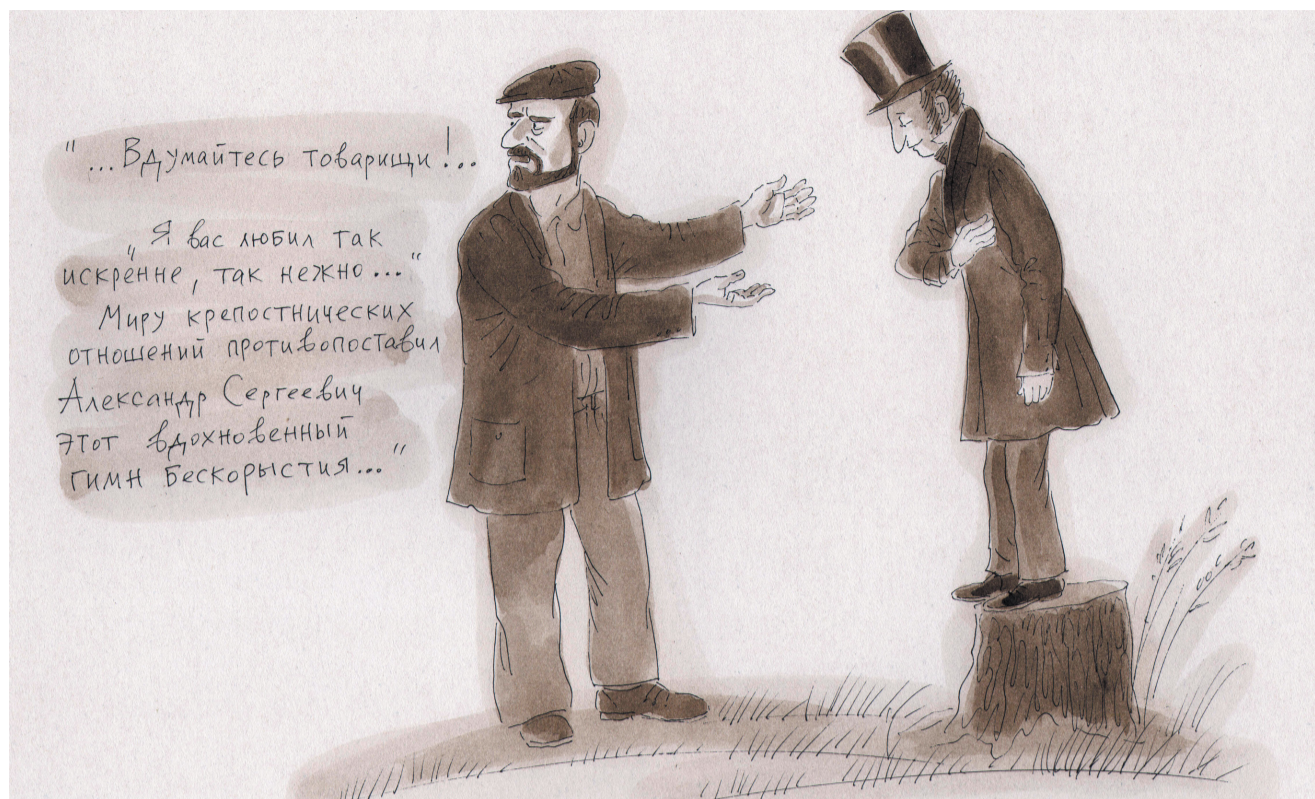 "...Вдумайтесь товарищи!...
„Я вас любил так
искренне, так нежно..."
Миру крепостнических
отношений противопоставил
Александр Сергеевич
этот вдохновенный
гимн Бескорыстия..."